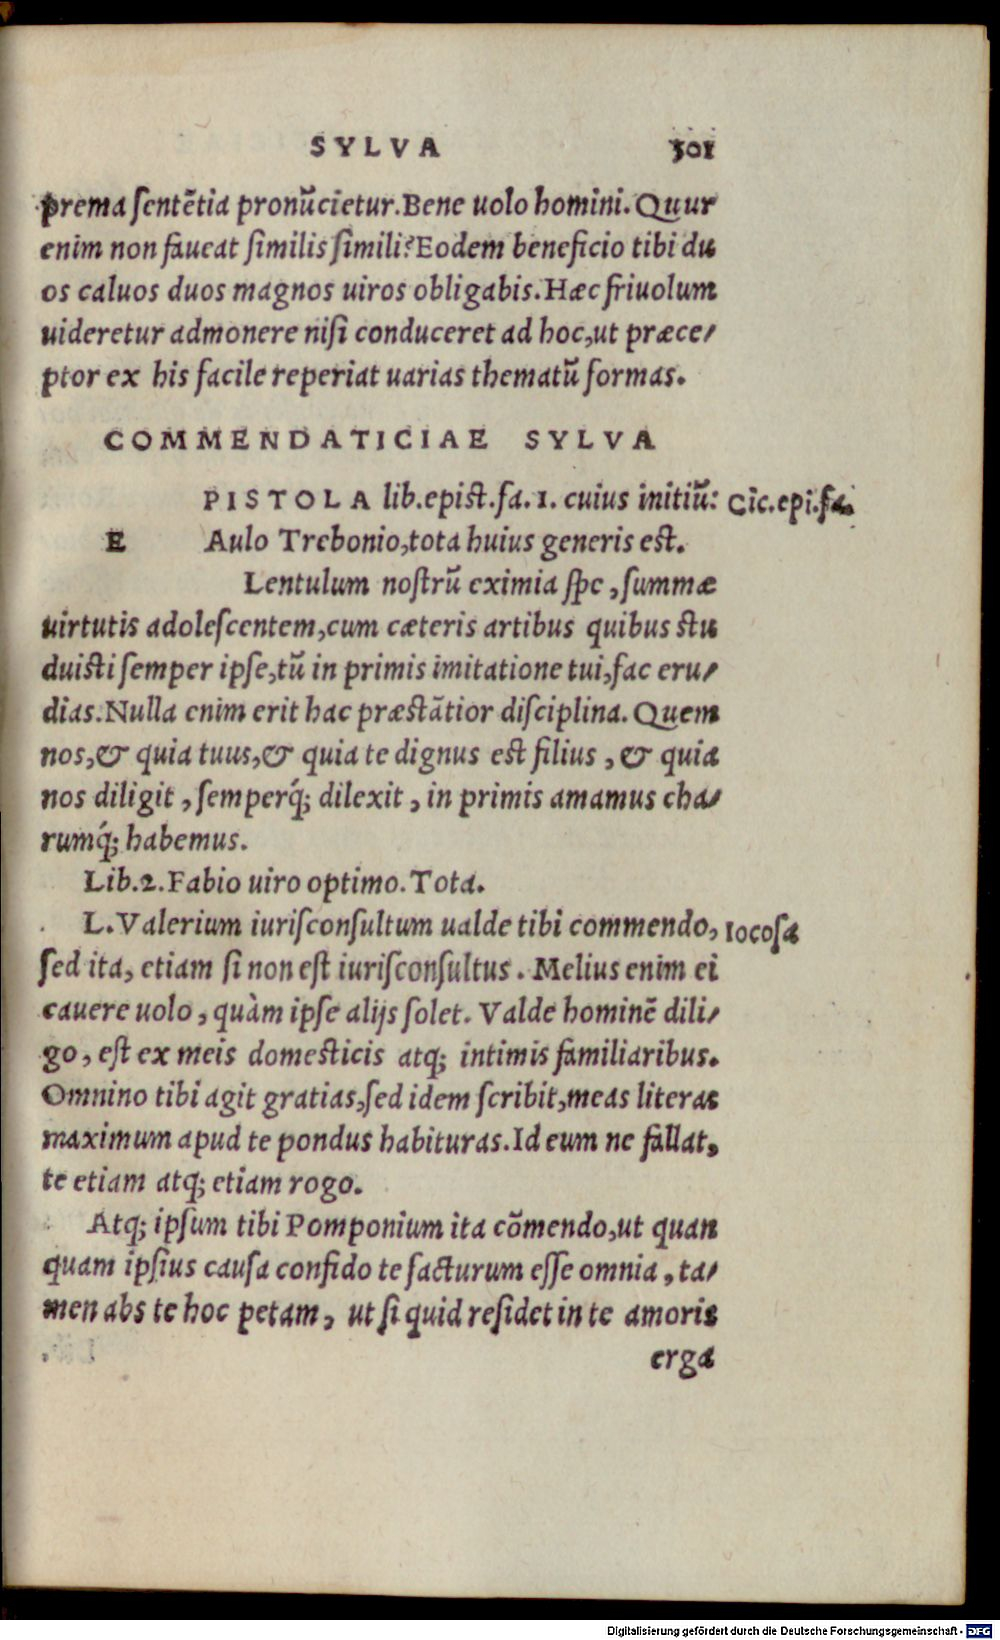 SYLVA 301
prema sentẽtia pronũcietur. Bene uolo homini. Quur
enim non faueat similis simili? Eodem beneficio tibi du
os caluos duos magnos uiros obligabis. Hæc friuolum
uideretur admonere nisi conduceret ad hoc, ut præce/
ptor ex his facile reperiat uarias thematũ formas.
COMMENDATICIAE SYLVA
EPISTOLA lib. epist. fa. 1. cuius initiũ: Cic. epi. fa.
Aulo Trebonio, tota huius generis est.
Lentulum nostrũ eximia spe, summæ
uirtutis adolescentem, cum cæteris artibus quibus stu
duisti semper ipse, tũ in primis imitatione tui, fac eru/
dias. Nulla enim erit hac præstãtior disciplina. Quem
nos, & quia tuus, & quia te dignus est filius, & quia
nos diligit, semperq́; dilexit, in primis amamus cha/
rumq́; habemus.
Lib. 2. Fabio uiro optimo. Tota.
L. Valerium iurisconsultum ualde tibi commendo, Iocosa
sed ita, etiam si non est iurisconsultus. Melius enim ei
cauere uolo, quàm ipse alijs solet. Valde hominẽ dili/
go, est ex meis domesticis atq; intimis familiaribus.
Omnino tibi agit gratias, sed idem scribit, meas literas
maximum apud te pondus habituras. Id eum ne fallat,
te etiam atq; etiam rogo.
Atq; ipsum tibi Pomponium ita cõmendo, ut quan
quam ipsius causa confido te facturum esse omnia, ta/
men abs te hoc petam, ut si quid residet in te amoris
erga
Digitalisierung gefördert durch die Deutsche Forschungsgemeinschaft - DFG